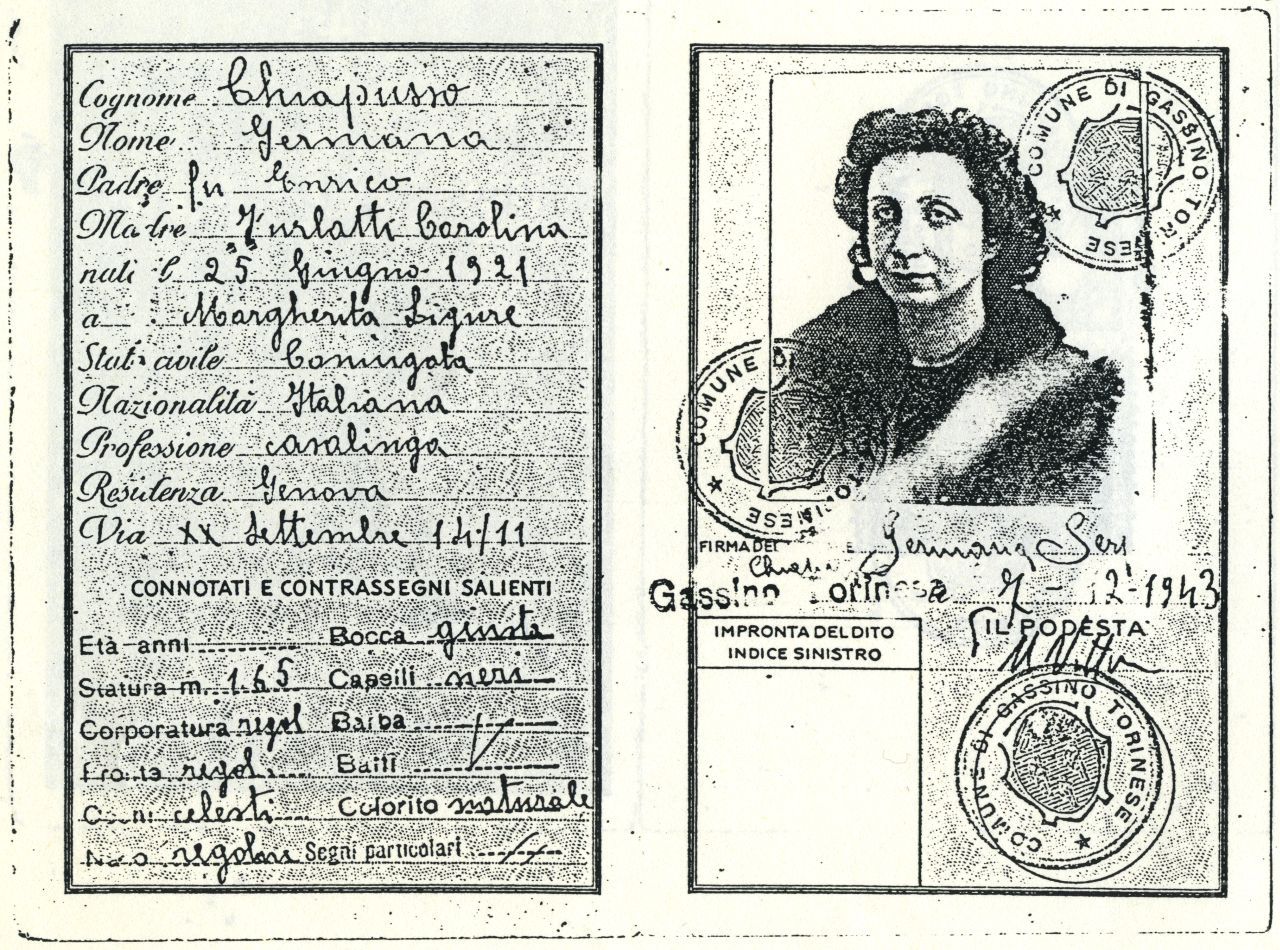 Cognome Chiapusso
Nome Germana
Padre fu Enrico
Madre Furlatti Carolina
nata il 25 Giugno 1921
a Margherita Ligure
Stato civile Coniugata
Nazionalità Italiana
Professione casalinga
Residenza Genova
Via XX Settembre 14/11
CONNOTATI E CONTRASSEGNI SALIENTI
Età anni Bocca giusta
Statura m. 1.65 Capelli neri
Corporatura regol Barba
Fronte regol. Baffi
Occhi celesti Colorito naturale
Naso regolare Segni particolari
COMUNE DI GASSINO TORINESE
COMUNE DI TORINESE
FIRMA DEL Germana
Gassino Torinese 7-12-1943
IL PODESTA'
IMPRONTA DEL DITO
INDICE SINISTRO
COMUNE DI GASSINO TORINESE